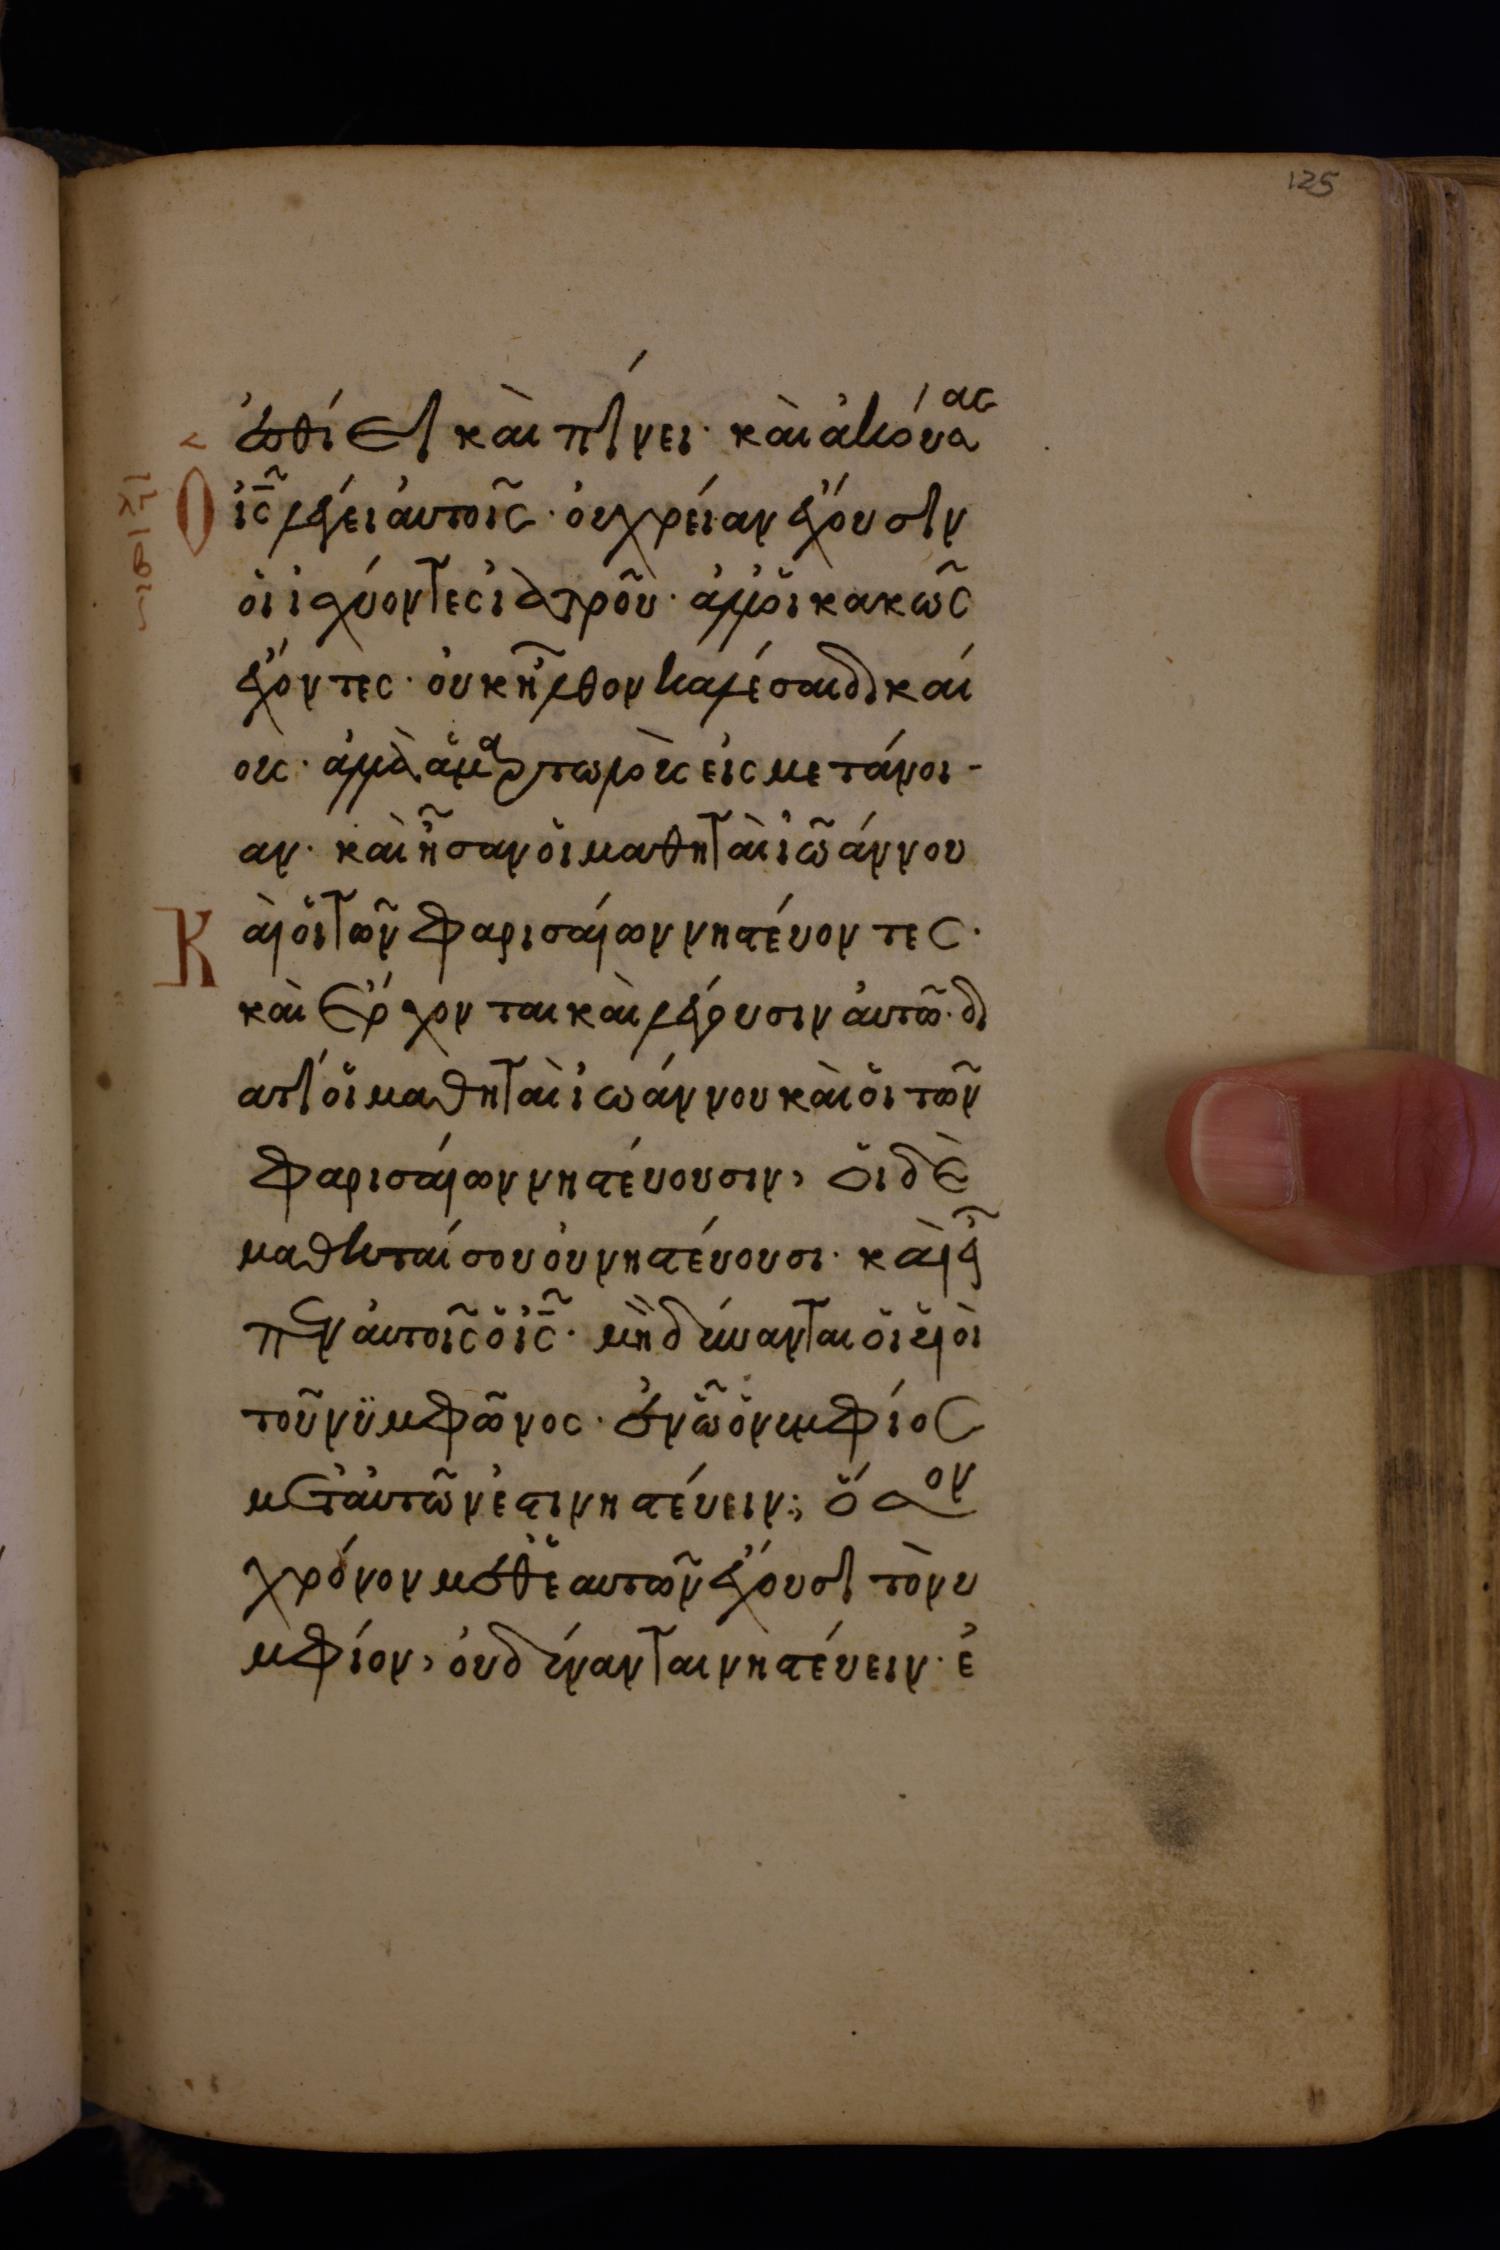 125
ἐσθίει καὶ πίνει· καὶ ἀκούσας
ὁ ις λέγει αὐτοῖς· οὐ χρείαν ἔχουσιν
οἱ ἰσχύοντες ἰατροῦ· ἀλλ' οἱ κακῶς
ἔχοντες· οὐκ ἦλθον καλέσαι δικαί
ους· ἀλλὰ ἁμαρτωλοὺς εἰς μετάνοι-
αν· καὶ ἦσαν οἱ μαθηταὶ ἰωάννου
Καὶ οἱ τῶν φαρισαίων νηστεύοντες·
καὶ ἔρχονται καὶ λέγουσιν αὐτῶ· δι
ατί οἱ μαθηταὶ ἰωάννου καὶ οἱ τῶν
φαρισαίων νηστεύουσιν, οἱ δὲ
μαθηταί σου οὐ νηστεύουσι· καὶ εἶ
πεν αὐτοῖς ὁ ις· μὴ δύνανται οἱ υἱοὶ
τοῦ νϋμφῶνος· ἐν ὧ ὁ νυμφίος
μετ' αὐτῶν ἐστι νηστεύειν; ὅσον
χρόνον μεθ' ἑαυτῶν ἔχουσι τὸν νυ
μφίον, οὐ δύνανται νηστεύειν· ἐ